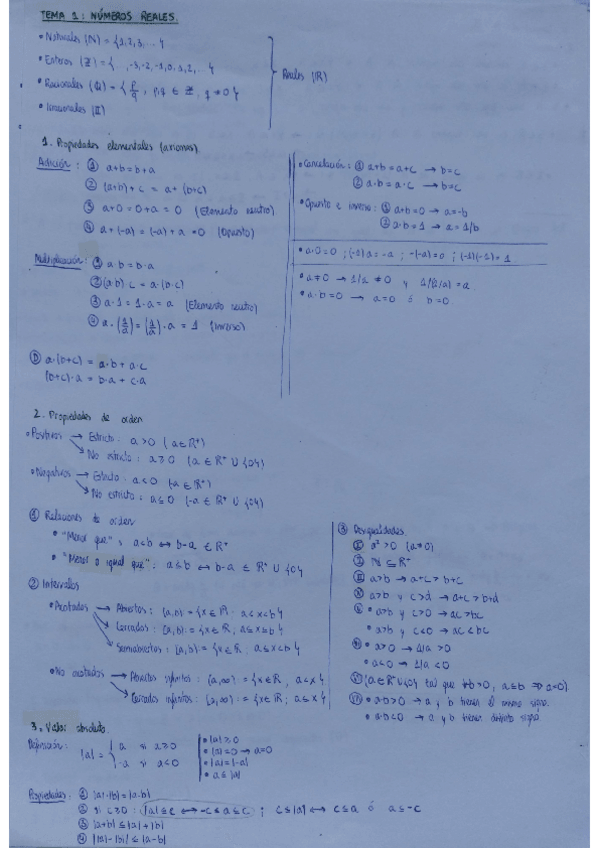 TEMA 1: NÚMEROS REALES.
• Naturales (ℕ) = {1, 2, 3, ...}
• Enteros (ℤ) = {..., -3, -2, -1, 0, 1, 2, ...}
• Racionales (ℚ) = {p/q, p,q ∈ ℤ, q ≠ 0}
• Irracionales (𝕀)
Reales (ℝ)
1. Propiedades elementales (axiomas)
Adición: ① a+b = b+a
② (a+b)+c = a+(b+c)
③ a+0 = 0+a = 0 (Elemento neutro)
④ a+(-a) = (-a)+a = 0 (Opuesto)
Multiplicación: ① a·b = b·a
② (a·b)·c = a·(b·c)
③ a·1 = 1·a = a (Elemento neutro)
④ a·(1/a) = (1/a)·a = 1 (Inverso)
Ⓓ a·(b+c) = a·b + a·c
(b+c)·a = b·a + c·a
• Cancelación: ① a+b = a+c → b=c
② a·b = a·c → b=c
• Opuesto e inverso: ① a+b=0 → a=-b
② a·b=1 → a=1/b
• a·0=0 ; (-1)a=-a ; -(-a)=a ; (-1)(-1)=1
• a≠0 → 1/a ≠ 0 y 1/(1/a) = a
• a·b=0 → a=0 ó b=0
2. Propiedades de orden
• Positivos → Estricto: a>0 (a∈ℝ⁺)
→ No estricto: a≥0 (a∈ℝ⁺∪{0})
• Negativos → Estricto: a<0 (-a∈ℝ⁺)
→ No estricto: a≤0 (-a∈ℝ⁺∪{0})
① Relaciones de orden
• "Menor que": a<b ↔ b-a ∈ ℝ⁺
• "Menor o igual que": a≤b ↔ b-a ∈ ℝ⁺∪{0}
② Intervalos
• Acotados → Abiertos: (a,b) = {x∈ℝ; a<x<b}
→ Cerrados: [a,b] = {x∈ℝ; a≤x≤b}
→ Semiabiertos: [a,b) = {x∈ℝ; a≤x<b}
• No acotados → Abiertos infinitos: (a,∞) = {x∈ℝ, a<x}
→ Cerrados infinitos: [a,∞) = {x∈ℝ; a≤x}
③ Desigualdades
a²>0 (a≠0)
ℕ ⊆ ℝ⁺
a>b → a+c > b+c
a>b y c>d → a+c > b+d
• a>b y c>0 → ac>bc
• a>b y c<0 → ac<bc
• a>0 → 1/a >0
• a<0 → 1/a <0
(a∈ℝ⁺∪{0} tal que ∀b>0, a≤b ⇒ a=0)
• a·b>0 → a y b tienen el mismo signo.
• a·b<0 → a y b tienen distinto signo
3. Valor absoluto.
Definición: |a| = { a si a≥0
-a si a<0
• |a|≥0
• |a|=0 → a=0
• |a|=|-a|
• a≤|a|
Propiedades: ① |a|·|b| = |a·b|
② si c≥0: |a|≤c ↔ -c≤a≤c ; c≤|a| ↔ c≤a ó a≤-c
③ |a+b| ≤ |a|+|b|
④ ||a|-|b|| ≤ |a-b|